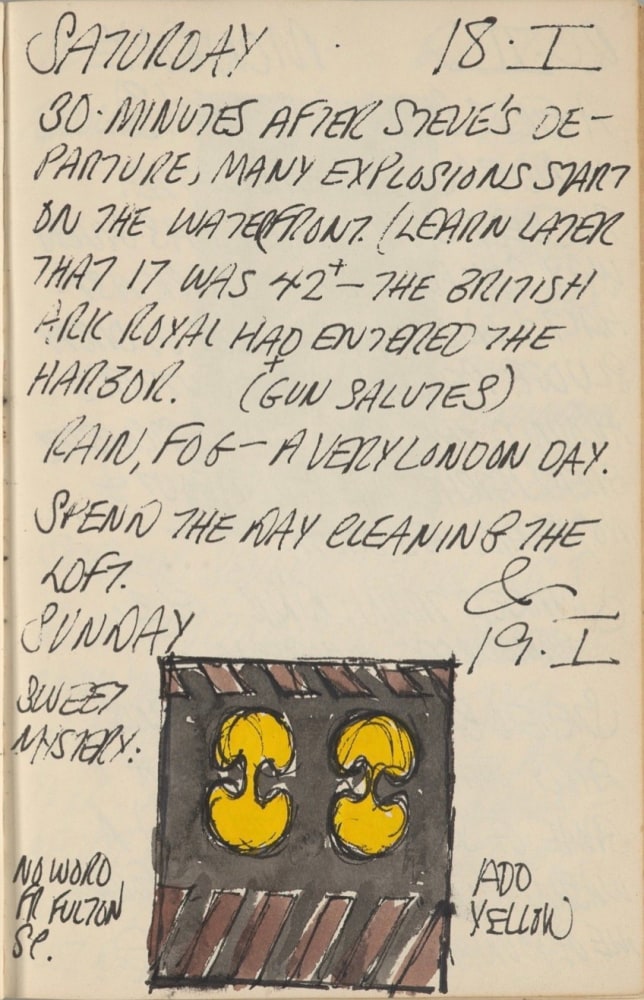 SATURDAY 18·I
30·MINUTES AFTER STEVE'S DE-
PARTURE, MANY EXPLOSIONS START
ON THE WATERFRONT. (LEARN LATER
THAT IT WAS 42+ — THE BRITISH
ARK ROYAL HAD ENTERED THE
HARBOR. (GUN SALUTES)
RAIN, FOG — A VERY LONDON DAY.
SPEND THE DAY CLEANING THE
LOFT.
&
SUNDAY 19·I
SWEET
MYSTERY:
NO WORD
FR FULTON
SP.
ADD
YELLOW